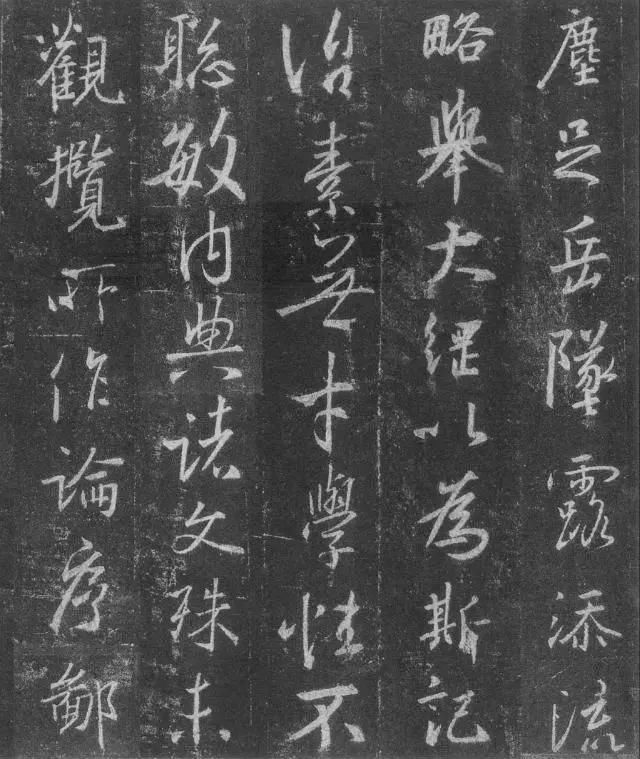 塵足岳墜露添流
略舉大綱以為斯記
治素無才學性不
聰敏内典諸文殊未
觀攬所作論序鄙